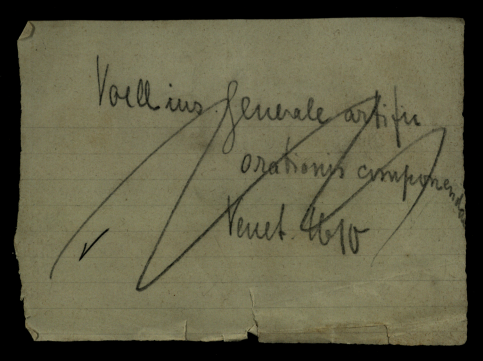 Voellius. Generale artifu
orationis componendae
Venet. 1610